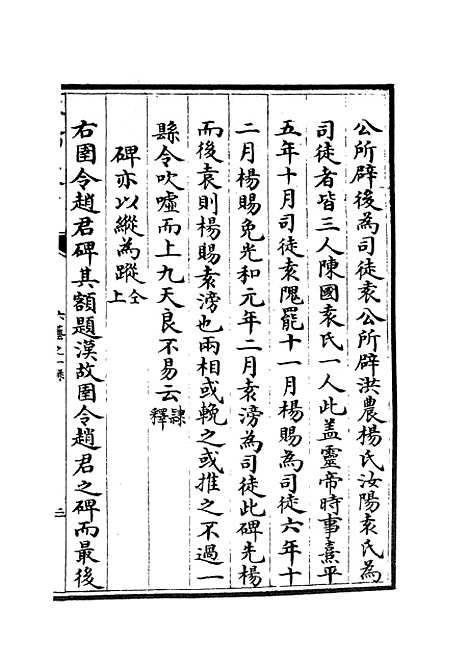 公所辟後為司徒袁公所辟洪農楊氏汝陽袁氏為
司徒者皆三人陳國袁氏一人此盖靈帝時事熹平
五年十月司徒袁隗罷十一月楊賜為司徒六年十
二月楊賜免光和元年二月袁滂為司徒此碑先楊
而後袁則楊賜袁滂也兩相或輓之或推之不過一
縣令吹噓而上九天良不易云隸釋
碑亦以縱為蹤仝上
右圉令趙君碑其額題漢故圉令趙君之碑而最後
六藝之一錄
三